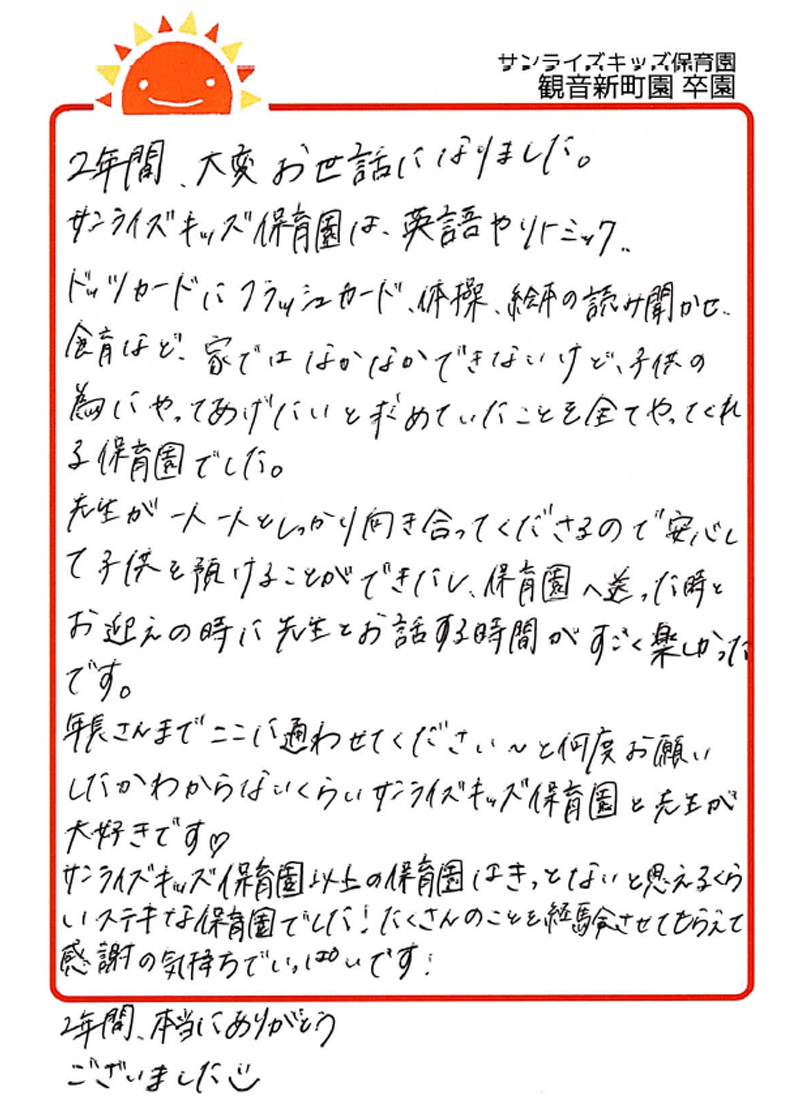 サンライズキッズ保育園
観音新町園 卒園
2年間、大変お世話になりました。
サンライズキッズ保育園は、英語やリトミック、
ドッツカードにフラッシュカード、体操、絵本の読み聞かせ、
食育など、家ではなかなかできないけど、子供の
為にやってあげたいと求めていたことを全てやってくれ
る保育園でした。
先生が一人一人としっかり向き合ってくださるので安心し
て子供を預けることができたし、保育園へ送った時と
お迎えの時に先生とお話する時間がすごく楽しかった
です。
年長さんまでここに通わせてください〜と何度お願い
したかわからないくらいサンライズキッズ保育園と先生が
大好きです♡
サンライズキッズ保育園以上の保育園はきっとないと思えるくら
いステキな保育園でした!たくさんのことを経験させてもらえて
感謝の気持ちでいっぱいです!
2年間、本当にありがとう
ございました